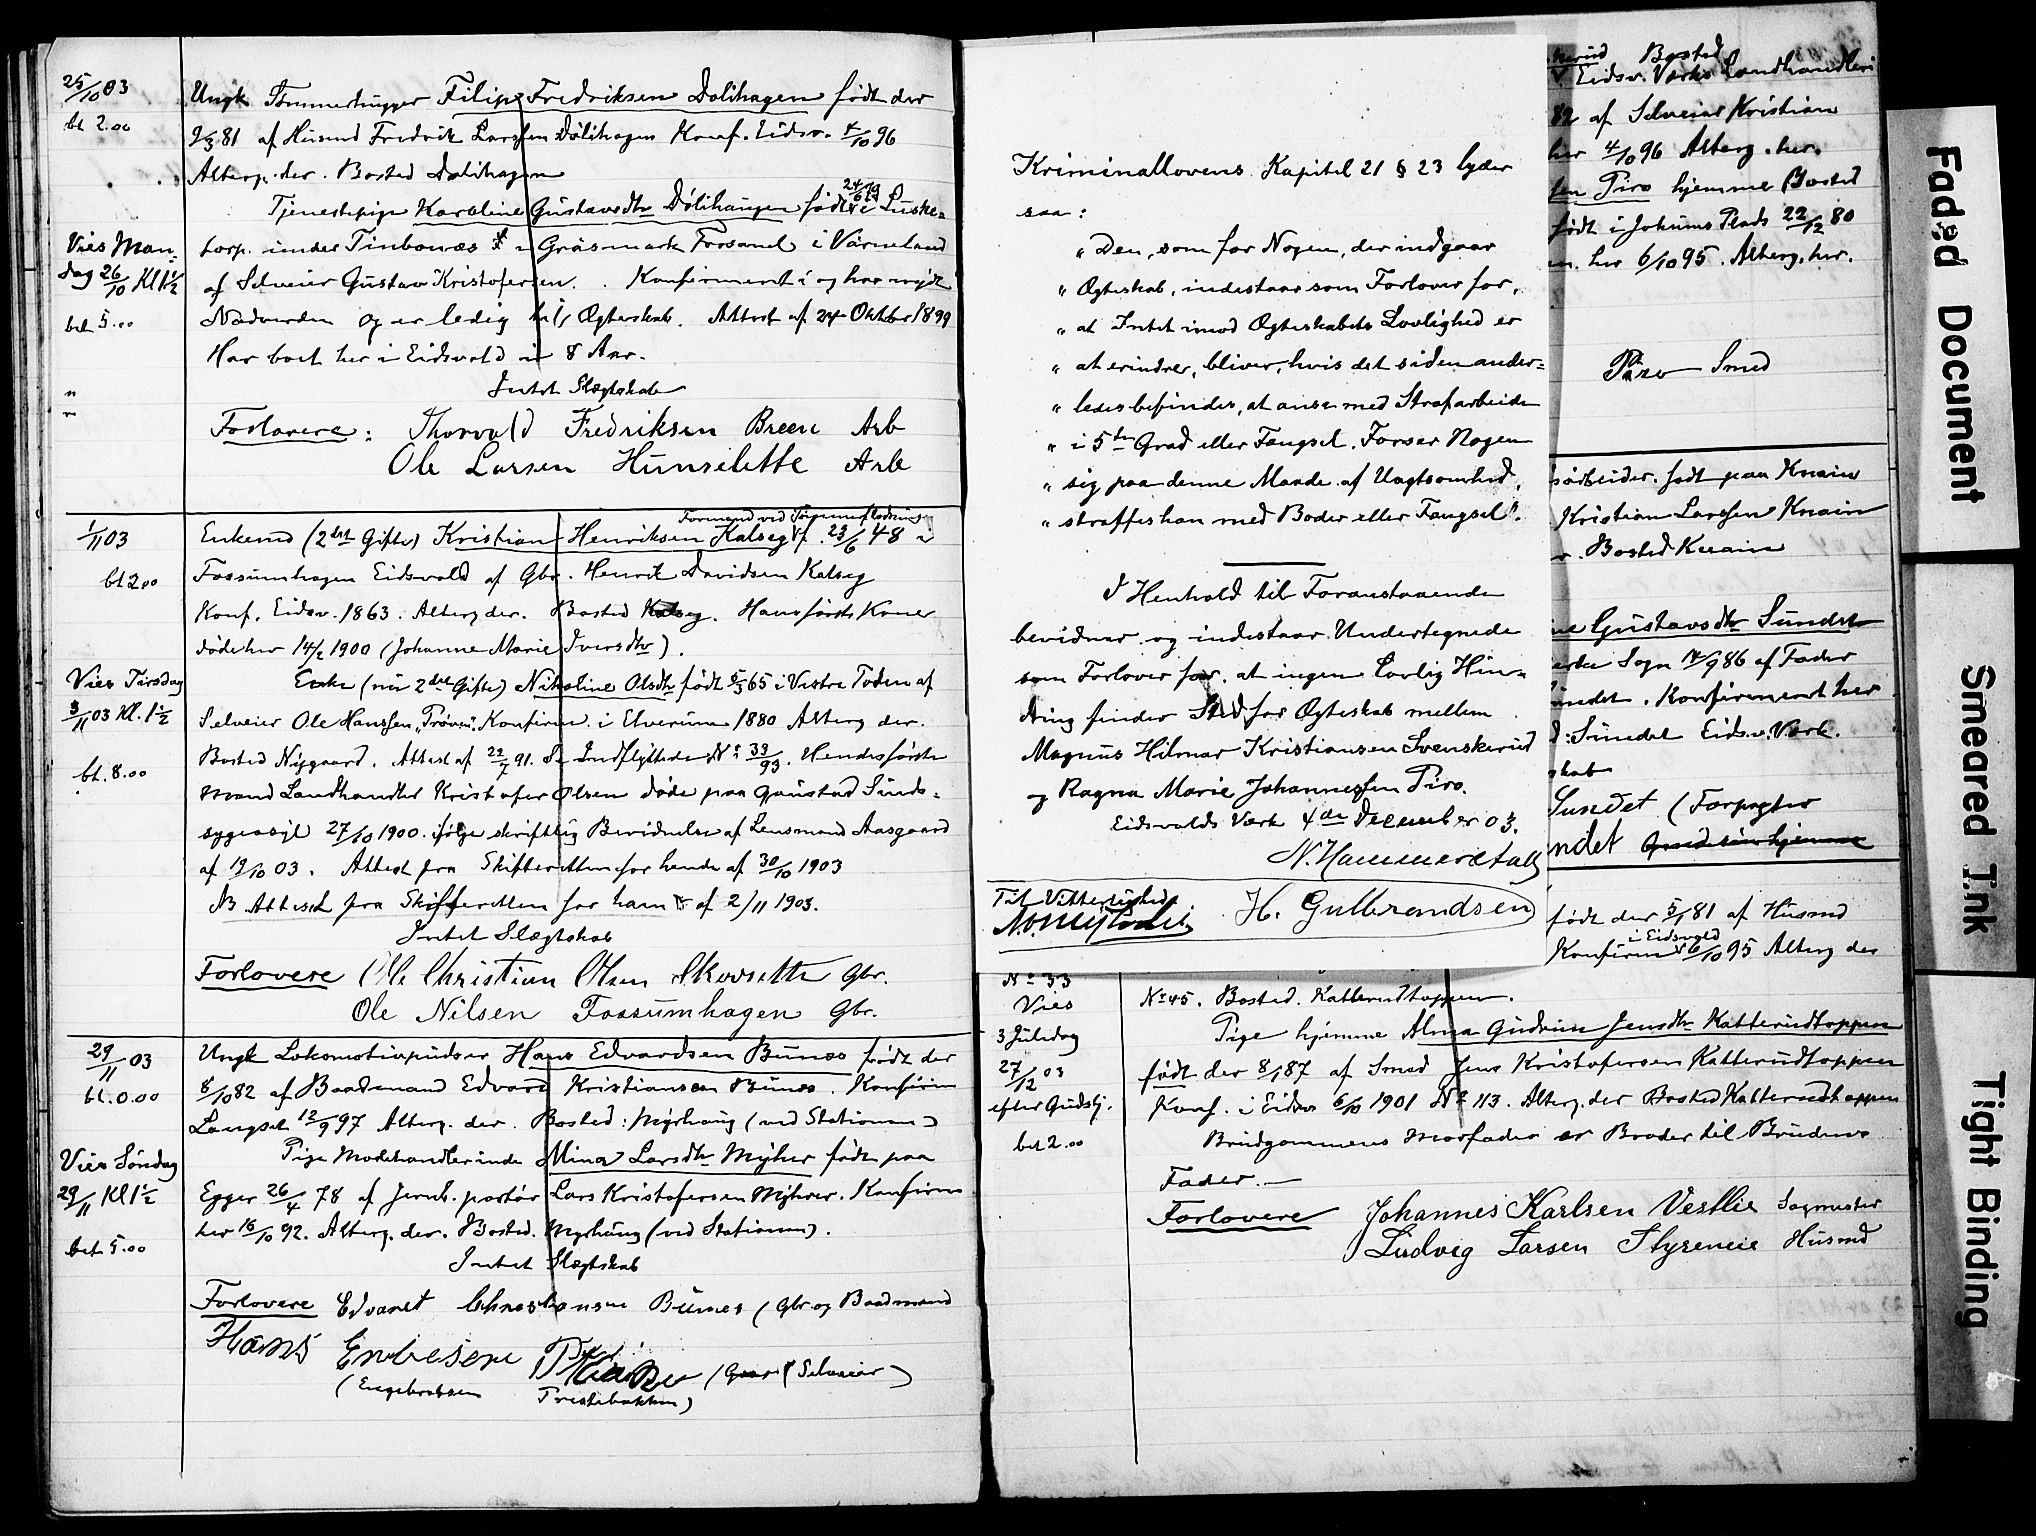 25/10 03
bt 2.00
Ungk Tømmerhugger Filip Fredriksen Dølihagen født der
9/3 81 af Husmd Fredrik Larssen Dølihagen Konf. Eidsv. 4/10 96
Alterg. der. Bosted Dølihagen
Tjenestepige Karoline Gustavsdtr Dølihaugen født i Luske-
Vies Man-
dag 26/10 Kl 1½
bet 5.00
torp under Timbonæs i Gräsmark Forsaml i Värmeland
af Selveier Gustav Kristofersen. Konfirmert i og har nydt
Nadverden og er ledig til Ægteskab. Attest af 24 Oktbr 1899
Har boet her i Eidsvold i 8 Aar.
Intet Slægtskab
Forlovere: Thorvald Fredriksen Breen Arb
Ole Larsen Hunselette Arb
1/11 03
bt 2.00
Formand ved Tømmerflødning
Enkemd (2det Gifte) Kristian Henriksen Kalseg f. 23/6 48 i
Fossumhagen Eidsvold af Gbr. Henrik Davidsen Kalseg
Konf. Eidsv. 1863. Alterg der. Bosted Kalseg. Hans første Kone
døde her 14/2 1900 (Johanne Marie Iversdtr).
Vies Tirsdag
3/11 03 Kl. 1½
bt. 8.00
Enke (nu 2det Gifte) Nikoline Olsdtr født 5/3 65 i Vestre Toten af
Selveier Ole Hanssen "Prøven". Konfirm. i Elverum 1880 Alterg der.
Bosted Nygaard. Attest af 22/7 91. Se Indflyttede No 33/93. Hendes første
Mand Landhandler Kristofer Olsen døde paa Gaustad Sinds-
sygeasyl 27/10 1900 ifølge skriftlig Bevidnelse af Lensmand Aasgaard
af 19/10 03. Attest fra Skifteretten for hende af 30/10 1903
NB Attest fra Skifteretten for ham af 2/11 1903.
Intet Slægtskab
Forlovere Ole Christian Olsen Skovsette Gbr.
Ole Nilsen Fossumhagen Gbr.
29/11 03
bt. 0.00
Ungk Lokomotivpudser Hans Edvardsen Bunæs født der
8/10 82 af Baadmand Edvard Kristiansen Bunæs. Konfirm
Langset 12/9 97 Alterg. der. Bosted: Myrhaug (ved Stationen)
Vies Søndag
29/11 Kl 1½
bet 5.00
Pige Modehandlerinde Mina Larsdtr Myhrer født paa
Egger 26/4 78 af Jernb. portør Lars Kristofersen Myhrer. Konfirm
her 16/10 92. Alterg. der. Bosted. Myrhaug (ved Stationen).
Intet Slægtskab
Forlovere Edvardt Christiansen Bunes (Gbr og Baadmand
Hans Enbesen
(Engebretsen Prestebakken) (Selveier)
Kriminallovens Kapitel 21 § 23 lyder
saa:
"Den, som for Nogen, der indgaar
" Ægteskab, indestaar som Forlover for,
" at Intet imod Ægteskabets Lovlighed er
" at erindre, bliver, hvis det siden ander-
" ledes befindes, at anse med Strafarbeide
" i 5te Grad eller Fængsel. Forser Nogen
" sig paa denne Maade af Uagtsomhed,
" straffes han med Bøder eller Fængsel".
I Henhold til Foranstaaende
bevidner og indestaar Undertegnede
som Forlover for, at ingen Lovlig Hin-
dring finder Sted for Ægteskab mellem
Magnus Hilmar Kristiansen Svenskerud
og Ragna Marie Johannessen Piro.
Eidsvolds Værk 4de December 03.
N. Hammerstad
Til Vitterlighed
H. Gulbrandsen
kerud Bosted
v. Eidsv. Værks Landhandleri
82 af Selveier Kristian
her 4/10 96 Alterg. her.
sen Piro hjemme Bosted
født i Johnuns Plads 22/12 80
her 6/10 95. Alterg. her.
Piro Smed
sarbeider. født paa Knain
Kristian Larssen Knain
Bosted Knain
ne Gustavsdtr Sundet
Sogn 14/9 86 af Fader
undet. Konfirmert her
d: Sundet Eidsv. Værk.
skab
Sundet (Forpagter
ndet
født der 5/1 81 af Husmd
i Eidsvold
Konfirm 6/10 95 Alterg der
No 33
Vies
3 Juledag
27/12 03
efter Gudstj.
bet 2.00
No 45. Bosted. Katterudtoppen.
Pige hjemme Alma Gudrun Jensdtr Katterudtoppen
født der 8/1 87 af Smed Jens Kristofersen Katterudtoppen
Konf. i Eidsv 6/10 1901 No 113. Alterg. der Bosted Katterudtoppen
Brudgommens Morfader er Broder til Brudens
Fader.
Forlovere Johannes Karlsen Vestlie Sagmester
Ludvig Larsen Styreneie Husmd
Faded Document
Smeared Ink
Tight Binding